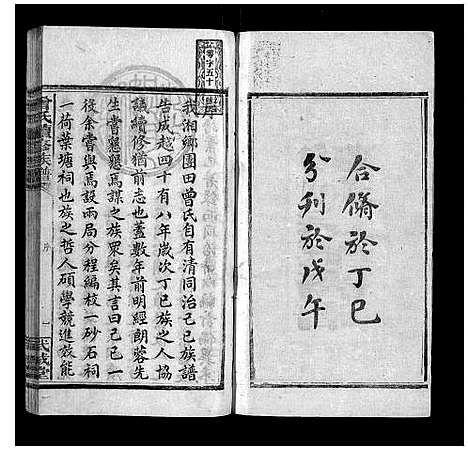 合脩於丁巳
分刊於戊午
字五十
我湘鄉團田曾氏自有清同治己巳族譜
告成越四十有八年歲次丁巳族之人協
議續修猶前志也蓋數年前明經朗蓉先
生嘗懇懇焉謀之族眾矣其言曰己巳一
役余嘗與焉設兩局分程編校一砂石祠
一荷葉塘祠也族之哲人碩學競進效能
曾氏續修族譜
序
一